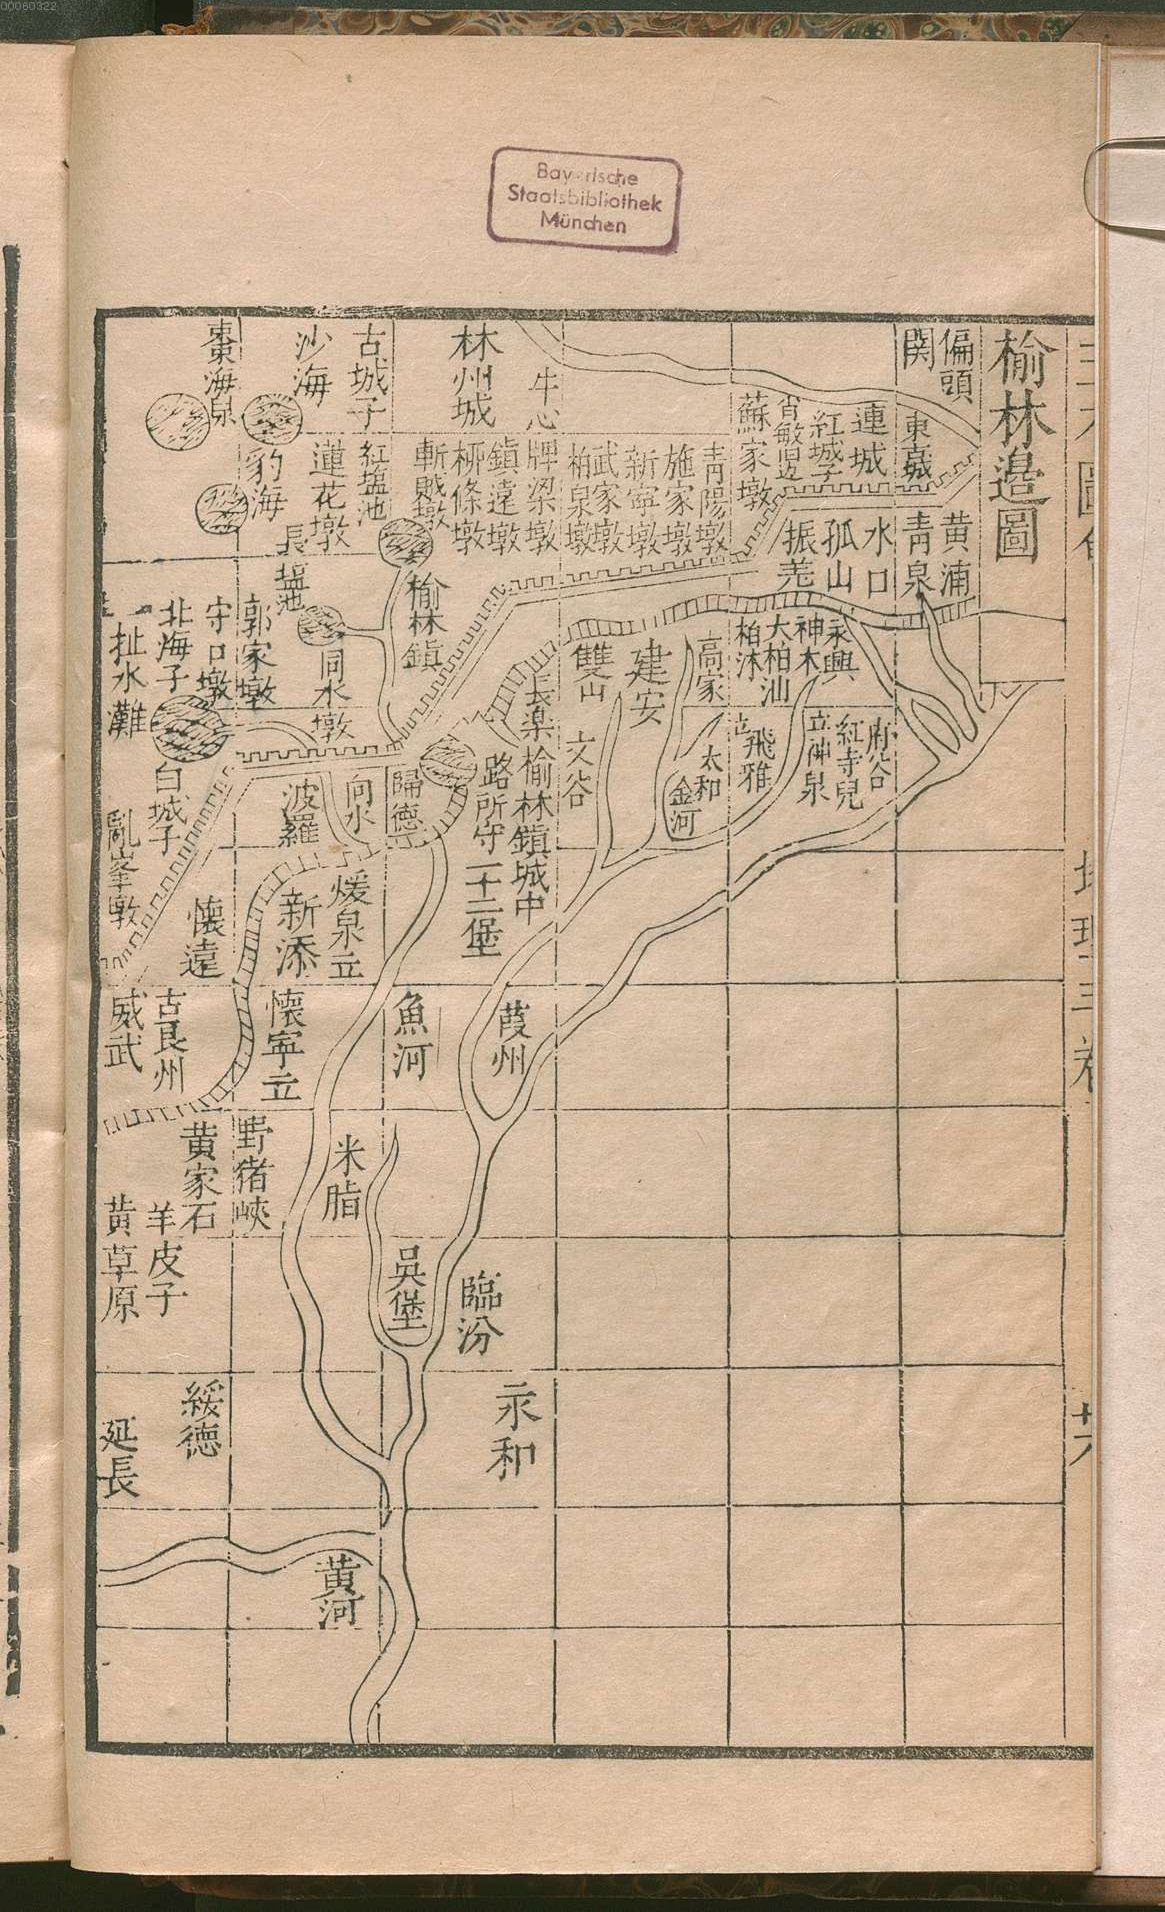 00060322
Bayerische
Staatsbibliothek
München
榆林邉圖
偏頭
関
黄浦
東嘉城
青泉
連城
水口
紅城子
孤山
振羗
蘇家墩
青陽墩
施家墩
新寧墩
武家墩
柏泉墩
牛心
牌梁墩
鎮遠墩
柳條墩
斬賊墩
林州城
古城子
紅塩池
沙海
蓮花墩
長塩池
豹海
棗海泉
榆林鎮
同水墩
郭家墩
守口墩
北海子
扯水灘
白城子
亂峯墩
永興
神木
大柏油
柏沐
高家
建安
雙山
長楽
府谷
紅寺兒
立仙泉
飛雅
太和
金河
文谷
榆林鎮城中
路所守二十二堡
歸德
向水
波羅
煖泉立
新添
懷遠
葭州
魚河
懷寧立
古艮州
威武
米脂
野猪峽
黄家石
羊皮子
黄草原
吳堡
臨汾
永和
綏德
延長
黄河